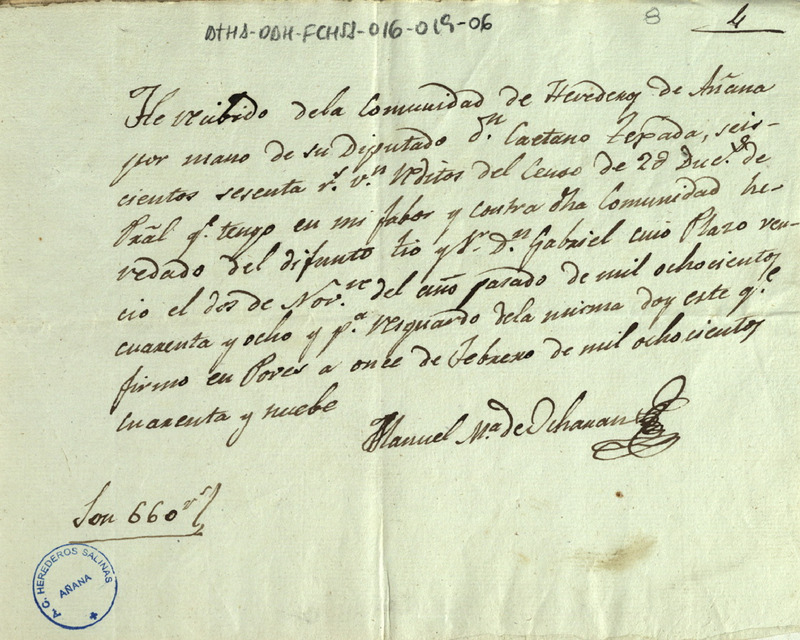 ATHA-DAH-FCHSS-016-019-06
8
4
He recibido dela Comunidad de Herederos de Añana
por mano de su Diputado Dn Caetano Texada, seis-
cientos sesenta rs. vn. Reditos del Censo de 20 Duc.s de
Pral qe. tengo en mi fabor y contra dha Comunidad he-
redado del difunto tio y Sr. Dn. Gabriel cuio Plazo ven-
cio el dos de Novre. del año pasado de mil ochocientos
cuarenta y ocho y pa. resguardo dela misma doy este qe.
firmo en Poves a once de Febrero de mil ochocientos
cuarenta y nuebe
Manuel Ma. de Ocharan
Son 660 rs
A.C. HEREDEROS SALINAS
AÑANA